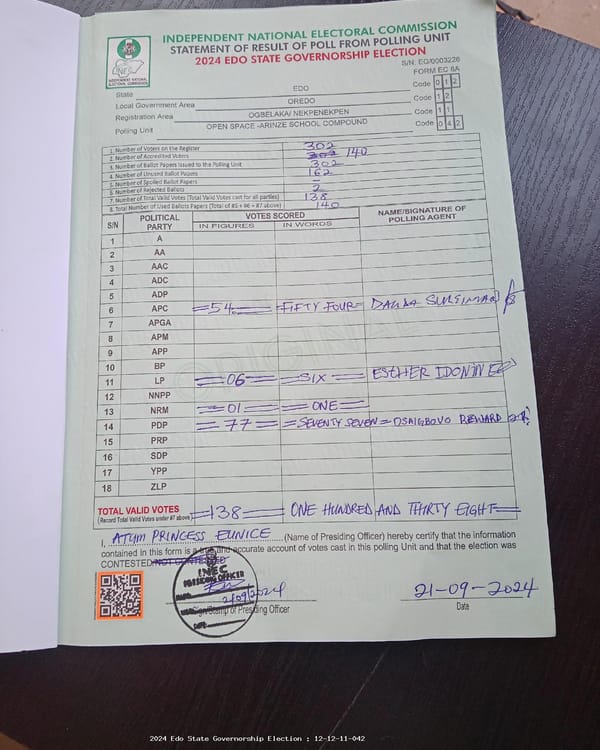 INDEPENDENT NATIONAL ELECTORAL COMMISSION
STATEMENT OF RESULT OF POLL FROM POLLING UNIT
2024 EDO STATE GOVERNORSHIP ELECTION
INEC
INDEPENDENT NATIONAL
ELECTORAL COMMISSION
S/N: EG/0003226
FORM EC 8A
State EDO Code 0 1 2
Local Government Area OREDO Code 1 2
Registration Area OGBELAKA/ NEKPENEKPEN Code 1 1
Polling Unit OPEN SPACE -ARINZE SCHOOL COMPOUND Code 0 4 2
1. Number of Voters on the Register 302
2. Number of Accredited Voters 302 140
3. Number of Ballot Papers Issued to the Polling Unit 302
4. Number of Unused Ballot Papers 162
5. Number of Spoiled Ballot Papers –
6. Number of Rejected Ballots 2
7. Number of Total Valid Votes (Total Valid Votes cast for all parties) 138
8. Total Number of Used Ballots Papers (Total of #5 + #6 + #7 above) 140
S/N POLITICAL PARTY VOTES SCORED NAME/SIGNATURE OF POLLING AGENT
IN FIGURES IN WORDS
1 A
2 AA
3 AAC
4 ADC
5 ADP
6 APC =54= FIFTY FOUR= DAUDA SULEIMAN
7 APGA
8 APM
9 APP
10 BP
11 LP =06= =SIX= ESTHER
12 NNPP
13 NRM =01= =ONE=
14 PDP =77= =SEVENTY SEVEN= OSAIGBOVO REWARD
15 PRP
16 SDP
17 YPP
18 ZLP
TOTAL VALID VOTES =138= ONE HUNDRED AND THIRTY EIGHT=
(Record Total Valid Votes under #7 above)
I, ATUM PRINCESS EUNICE (Name of Presiding Officer) hereby certify that the information
contained in this form is a true and accurate account of votes cast in this polling Unit and that the election was
CONTESTED/NOT CONTESTED
INEC
PRESIDING OFFICER
21/09/2024
DATE
Sign/Stamp of Presiding Officer
21-09-2024
Date
2024 Edo State Governorship Election : 12-12-11-042